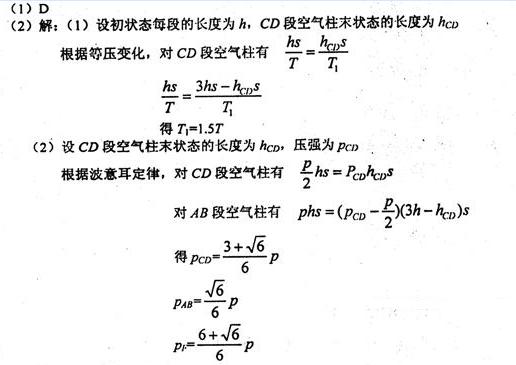 (1) D
(2) 解:(1) 设初状态每段的长度为 h, CD 段空气柱末状态的长度为 h_CD
根据等压变化, 对 CD 段空气柱有 hs/T = h_CD s/T₁
hs/T = (3hs − h_CD s)/T₁
得 T₁=1.5T
(2) 设 CD 段空气柱末状态的长度为 h_CD, 压强为 p_CD
根据波意耳定律, 对 CD 段空气柱有 p/2 hs = P_CD h_CD s
对 AB 段空气柱有 phs = (p_CD − p/2)(3h − h_CD)s
得 p_CD = (3+√6)/6 p
p_AB = √6/6 p
p_F = (6+√6)/6 p